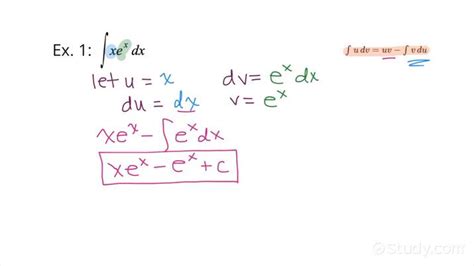 Ex. 1: ∫ xeˣ dx
∫ u dv = uv − ∫ v du
let u = x dv = eˣ dx
du = dx v = eˣ
xeˣ − ∫ eˣ dx
xeˣ − eˣ + c
©Study.com